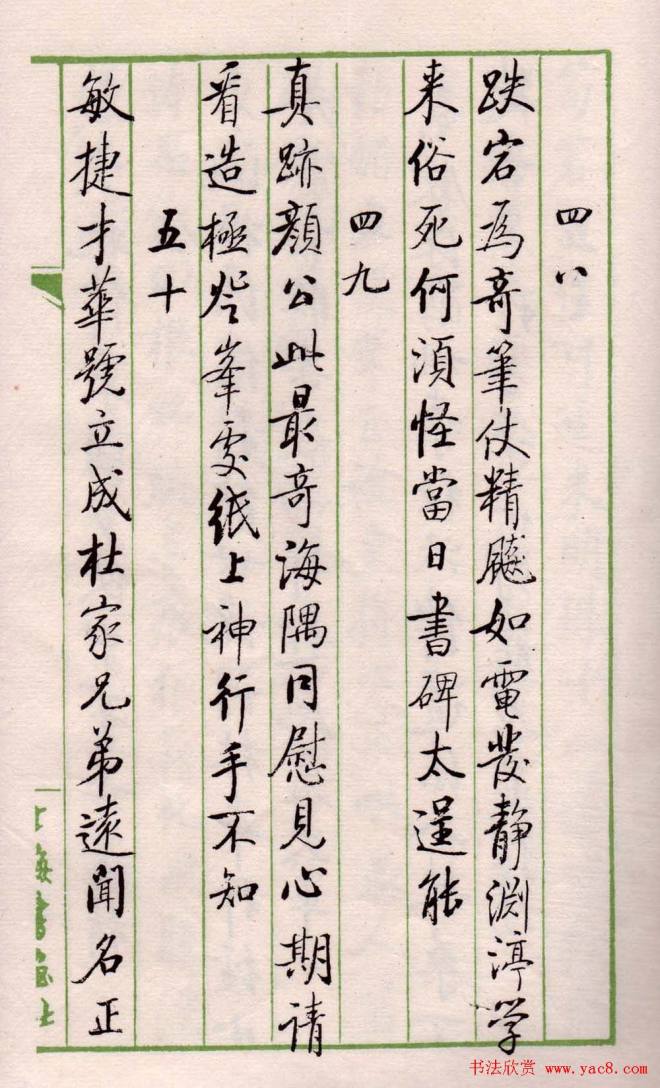 四八
跌宕爲奇筆仗精飈如電發靜淵渟学
来俗死何須怪當日書碑太逞能
四九
真跡顏公此最奇海隅同慰見心期请
看造極登峯處紙上神行手不知
五十
敏捷才華號立成杜家兄弟遠聞名正
上海書画社
书法欣赏 www.yac8.com